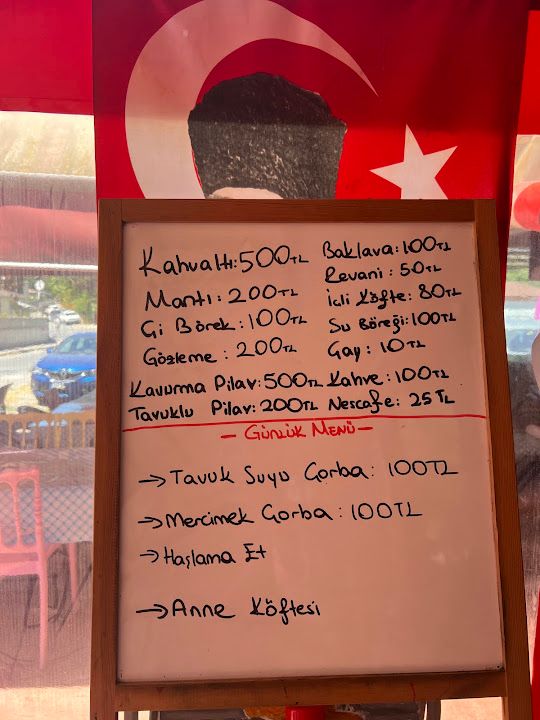 Kahvaltı: 500TL
Mantı: 200TL
Çi Börek: 100TL
Gözleme: 200TL
Kavurma Pilav: 500TL
Tavuklu Pilav: 200TL
Baklava: 100TL
Revani: 50TL
İçli Köfte: 80TL
Su Böreği: 100TL
Çay: 10TL
Kahve: 100TL
Nescafe: 25TL
- GÜNLÜK MENÜ -
→ Tavuk Suyu Çorba: 100TL
→ Mercimek Çorba: 100TL
→ Haşlama Et
→ Anne Köftesi